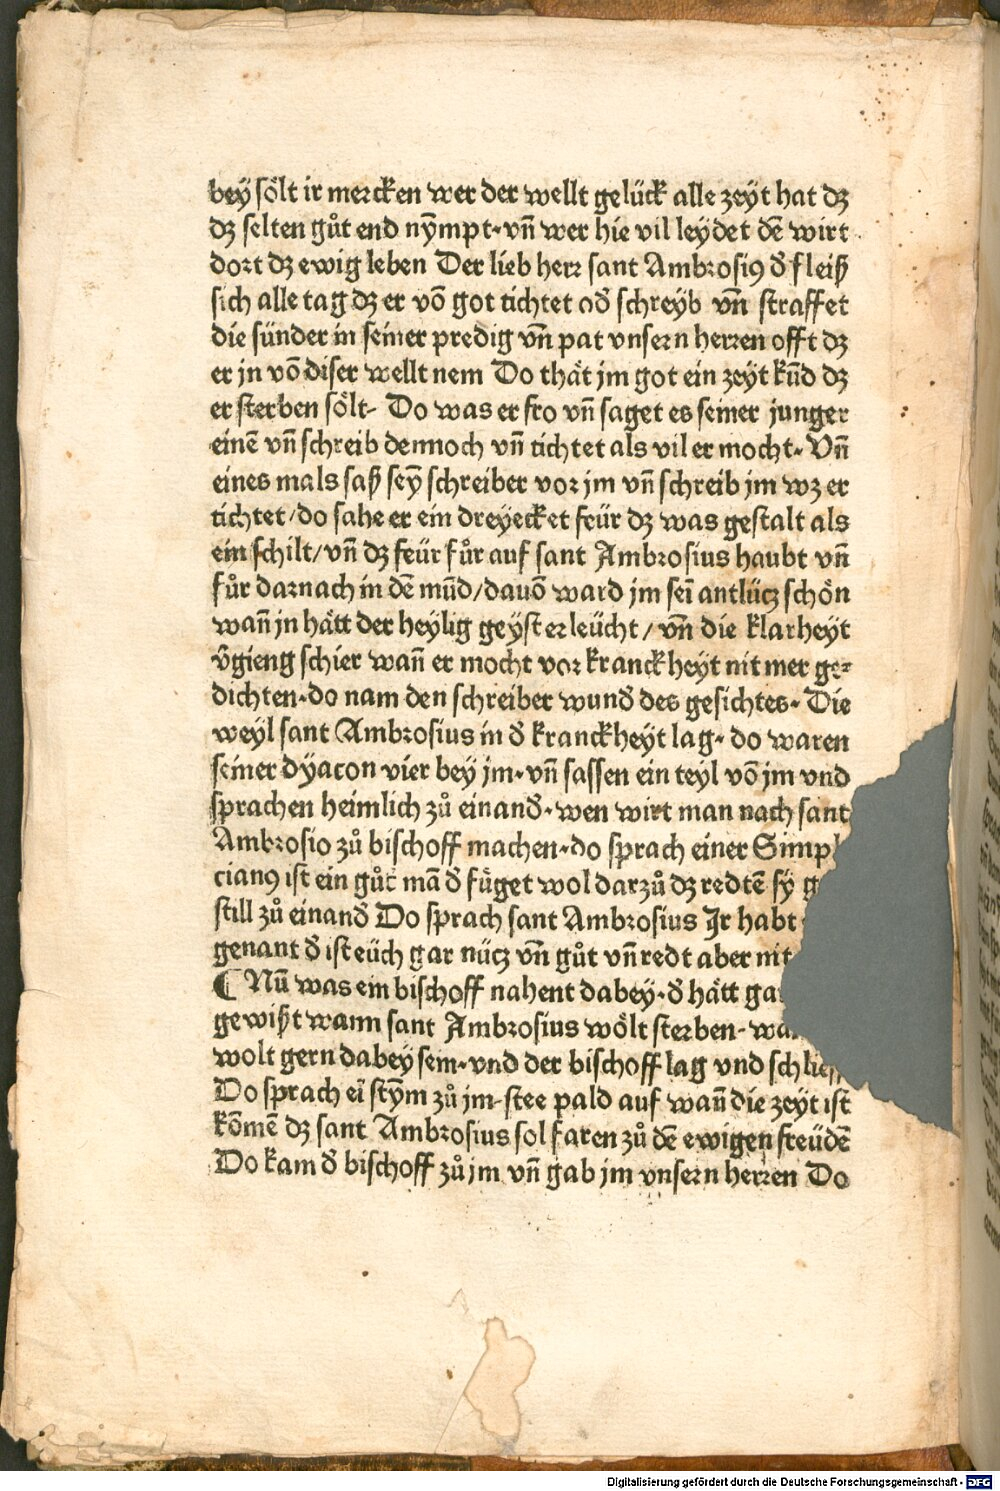 bey sölt ir mercken wer der wellt gelück alle zeyt hat dz
dz selten gůt end nӯmpt·vn̄ wer hie vil leydet dē wirt
dort dz ewig leben Der lieb herr sant Ambrosiꝰ đ fleiß
sich alle tag dz er vō got tichtet ođ schreyb vn̄ straffet
die sünder in seiner predig vn̄ pat vnsern herren offt dz
er jn vō diser wellt nem Do thät jm got ein zeyt kūd dz
er sterben sölt· Do was er fro vn̄ saget es seiner junger
einē vn̄ schreib dennoch vn̄ tichtet als vil er mocht· Vn̄
eines mals saß seӯ schreiber vor jm vn̄ schreib jm wz er
tichtet/do sahe er ein dreyecket feür dz was gestalt als
ein schilt/vn̄ dz feür fůr auf sant Ambrosius haubt vn̄
fůr darnach in dē mūd/dauō ward jm seī antlücz schön
wan̄ jn hätt der heylig geyst erleücht/vn̄ die klarheyt
v̄gieng schier wan̄ er mocht vor kranckheyt nit mer ge⸗
dichten·do nam den schreiber wunđ des gesichtes· Die
weyl sant Ambrosius in đ kranckheyt lag· do waren
seiner dyacon vier bey jm·vn̄ sassen ein teyl vō jm vnd
sprachen heimlich zů einanđ·wen wirt man nach sant
Ambrosio zů bischoff machen·do sprach einer Simpl
cianꝰ ist ein gůt mā đ füget wol darzů dz redtē sy g
still zů einanđ Do sprach sant Ambrosius Ir habt
genant đ ist eüch gar nücz vn̄ gůt vn̄ redt aber nit
¶ Nū was ein bischoff nahent dabey·đ hätt ga
gewißt wann sant Ambrosius wölt sterben· wa
wolt gern dabey sein·vnd der bischoff lag vnd schlieff
Do sprach eī stӯm zů jm·stee pald auf wan̄ die zeyt ist
kōmē dz sant Ambrosius sol faren zů dē ewigen freüdē
Do kam đ bischoff zů jm vn̄ gab jm vnsern herren Do
Digitalisierung gefördert durch die Deutsche Forschungsgemeinschaft - DFG